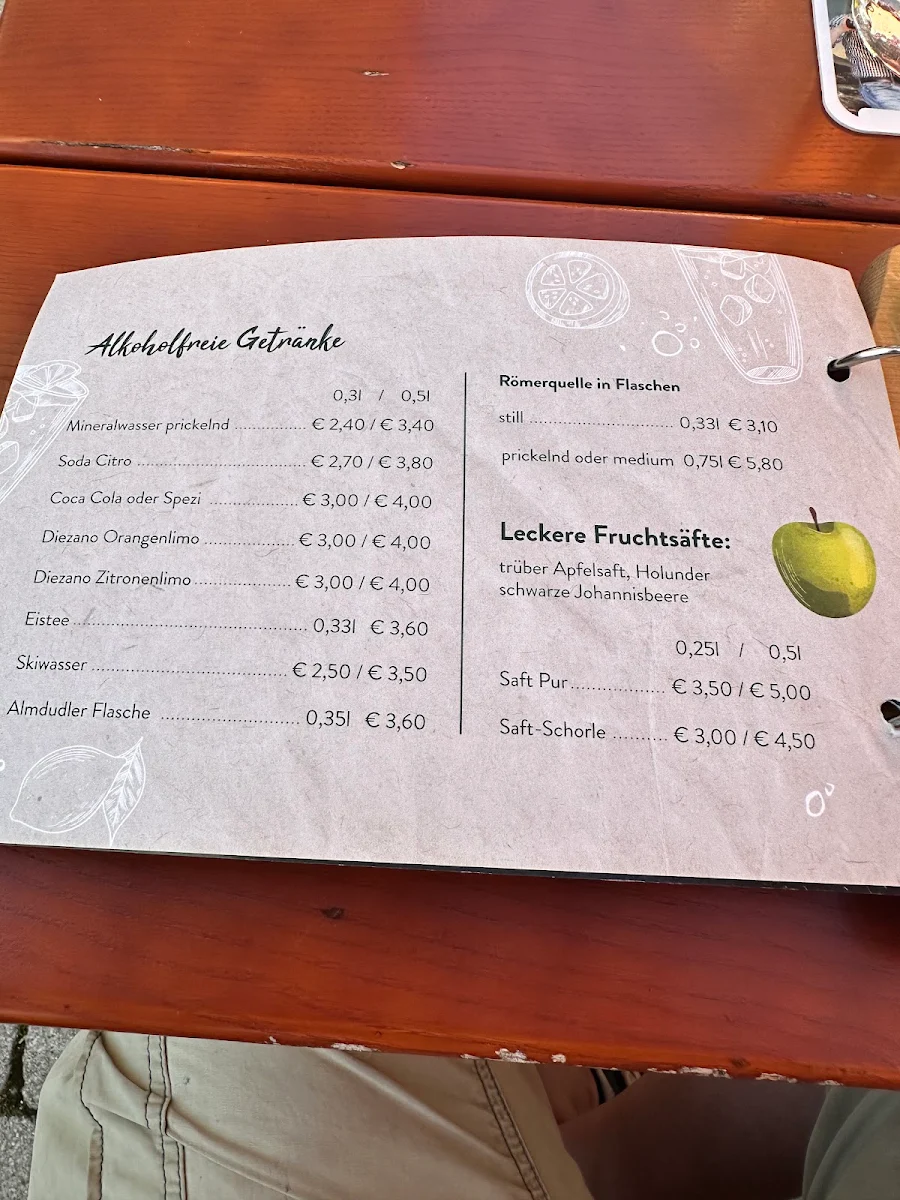 Alkoholfreie Getränke
0,3l / 0,5l
Mineralwasser prickelnd ............... € 2,40 / € 3,40
Soda Citro ................................... € 2,70 / € 3,80
Coca Cola oder Spezi .................. € 3,00 / € 4,00
Diezano Orangenlimo ................... € 3,00 / € 4,00
Diezano Zitronenlimo.................... € 3,00 / € 4,00
Eistee ................................................ 0,33l € 3,60
Skiwasser ........................................ € 2,50 / € 3,50
Almdudler Flasche ............................ 0,35l € 3,60
Römerquelle in Flaschen
still .............................. 0,33l € 3,10
prickelnd oder medium 0,75l € 5,80
Leckere Fruchtsäfte:
trüber Apfelsaft, Holunder
schwarze Johannisbeere
0,25l / 0,5l
Saft Pur.................... € 3,50 / € 5,00
Saft-Schorle ........... € 3,00 / € 4,50